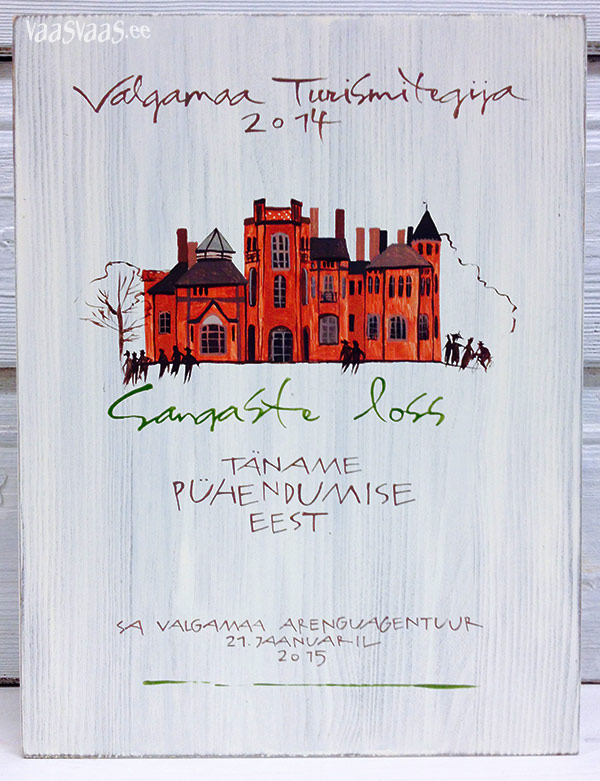 vaasvaas.ee
Valgamaa Turismitegija
2014
Sangaste loss
TÄNAME
PÜHENDUMISE
EEST
SA VALGAMAA ARENGUAGENTUUR
21. JAANUARIL
2015